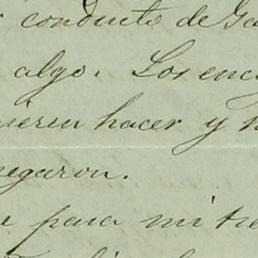 conducto de Ga
algo. Los enc
ieren hacer y
egaron.
e para mi